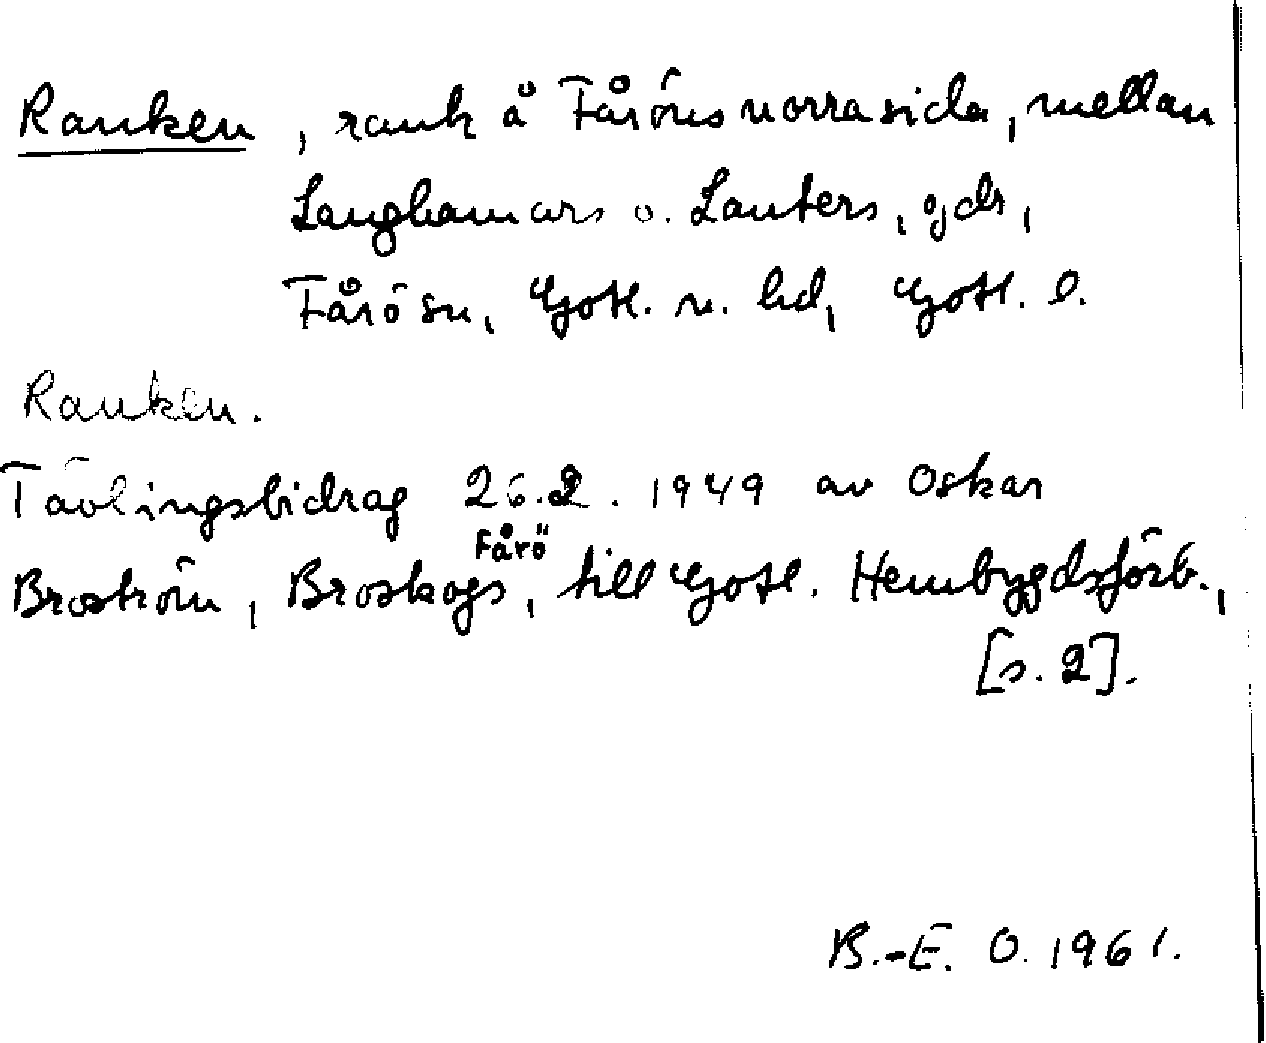 Rauken, rauk å Fåröns norra sida, mellan
Langhamars o. Lauters, gdr,
Fårö sn, Gotl. n. hd, Gotl. l.
Rauken.
Tävlingsbidrag 26.2.1949 av Oskar
Fårö
Broström, Broskogs, till Gotl. Hembygdsförb.,
[s. 2].
B.-E. O. 1961.